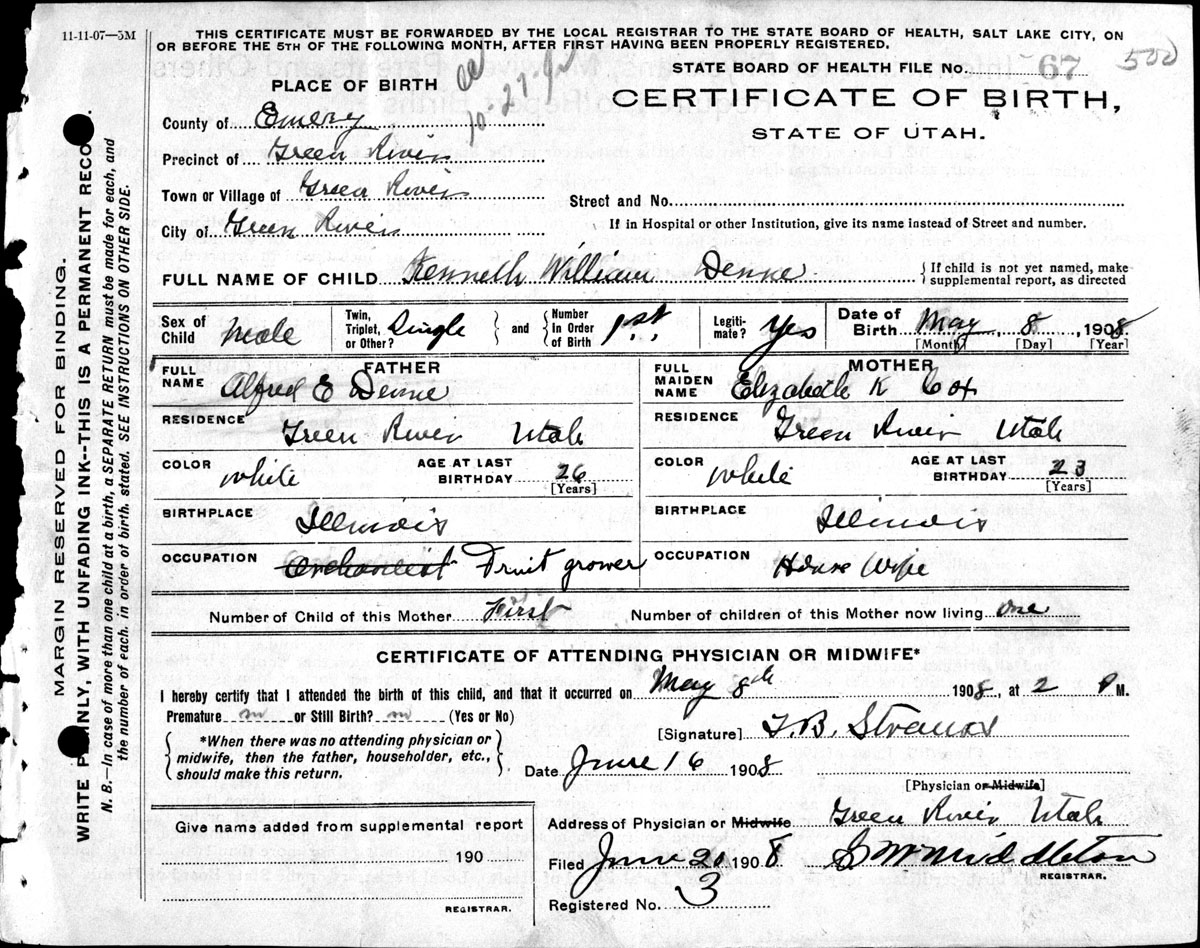 11-11-07—5M
THIS CERTIFICATE MUST BE FORWARDED BY THE LOCAL REGISTRAR TO THE STATE BOARD OF HEALTH, SALT LAKE CITY, ON
OR BEFORE THE 5TH OF THE FOLLOWING MONTH, AFTER FIRST HAVING BEEN PROPERLY REGISTERED.
500
STATE BOARD OF HEALTH FILE NO. 67
CERTIFICATE OF BIRTH,
STATE OF UTAH.
PLACE OF BIRTH
County of Emery
Precinct of Green River
Town or Village of Green River
City of Green River
Street and No.
If in Hospital or other Institution, give its name instead of Street and number.
FULL NAME OF CHILD Kenneth William Denne
{ If child is not yet named, make
supplemental report, as directed
Sex of Child Male
Twin, Triplet, or Other? Single } and { Number In Order of Birth 1st
Legiti-mate? Yes
Date of Birth May 8, 1908
[Month] [Day] [Year]
FATHER
FULL NAME Alfred E Denne
RESIDENCE Green River Utah
COLOR White AGE AT LAST BIRTHDAY 26 [Years]
BIRTHPLACE Illinois
OCCUPATION Orchardist Fruit grower
MOTHER
FULL MAIDEN NAME Elizabeth K Cox
RESIDENCE Green River Utah
COLOR White AGE AT LAST BIRTHDAY 23 [Years]
BIRTHPLACE Illinois
OCCUPATION House Wife
Number of Child of this Mother First Number of children of this Mother now living one
CERTIFICATE OF ATTENDING PHYSICIAN OR MIDWIFE*
I hereby certify that I attended the birth of this child, and that it occurred on May 8th 1908, at 2 P M.
Premature no or Still Birth? no (Yes or No)
{ *When there was no attending physician or
midwife, then the father, householder, etc.,
should make this return. }
[Signature]
Date June 16 1908
[Physician or Midwife]
Give name added from supplemental report
190
REGISTRAR.
Address of Physician or Midwife Green River Utah
Filed June 20 1908 Middleton
REGISTRAR.
Registered No. 3
MARGIN RESERVED FOR BINDING.
WRITE PLAINLY, WITH UNFADING INK--THIS IS A PERMANENT RECO
N. B.—In case of more than one child at a birth, a SEPARATE RETURN must be made for each, and
the number of each, in order of birth, stated. SEE INSTRUCTIONS ON OTHER SIDE.